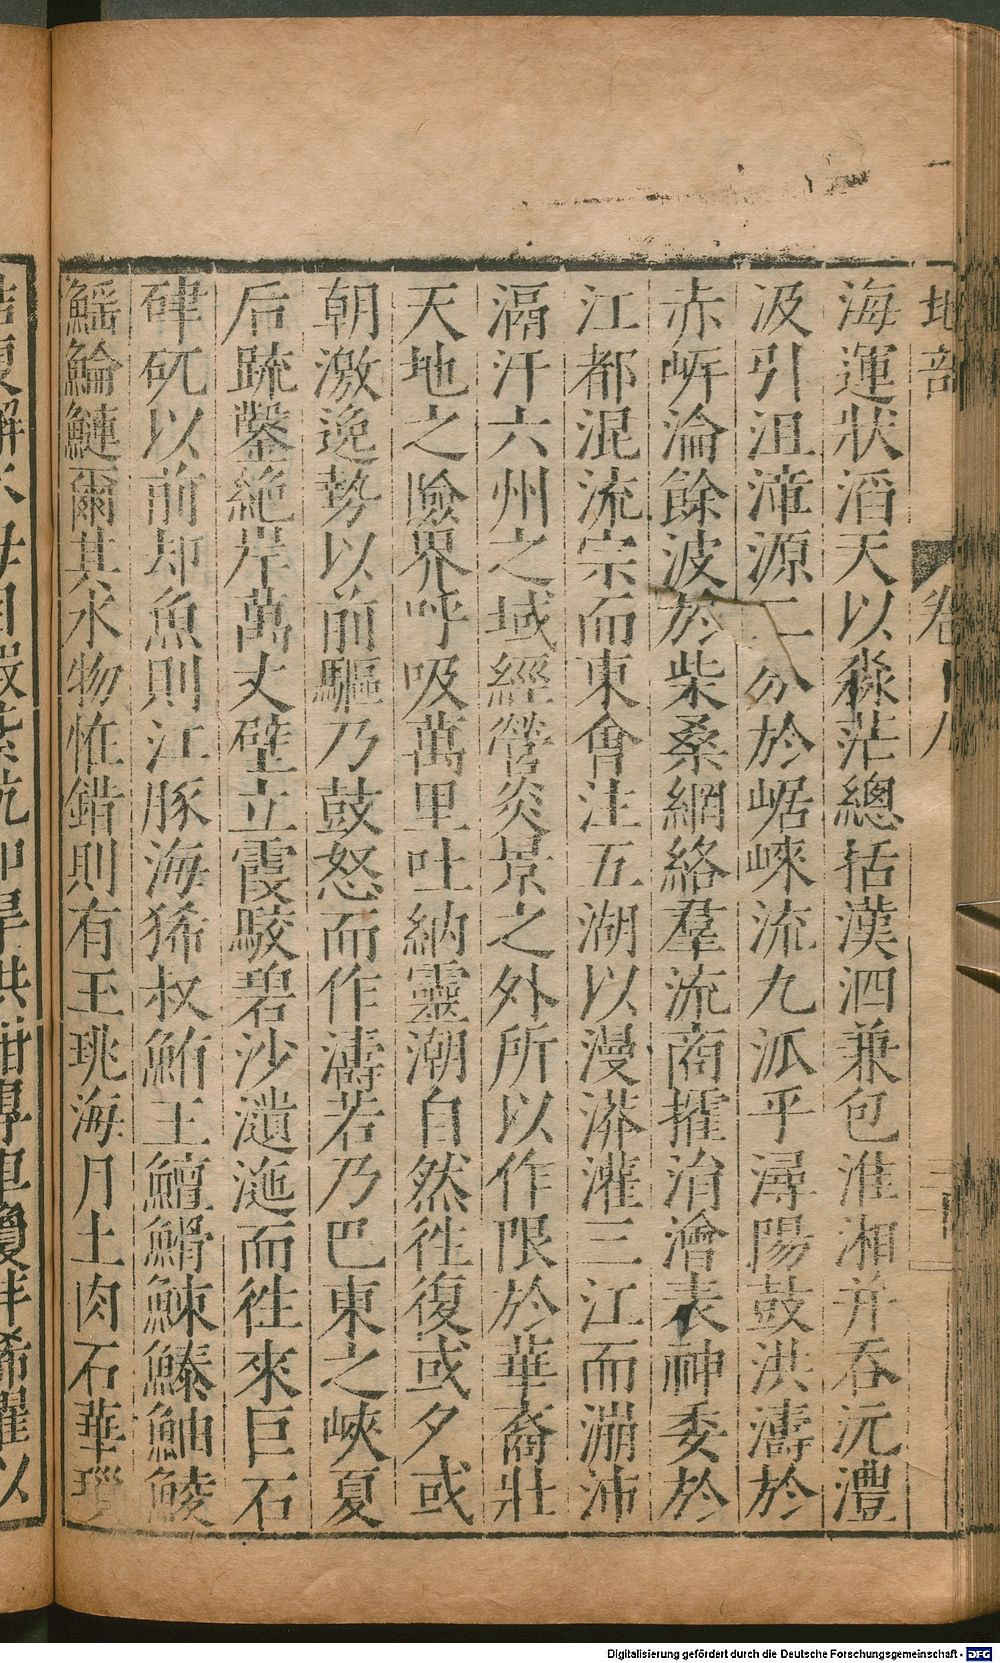 地部
卷
海運狀滔天以淼茫總括漢泗兼包淮湘并吞沅澧
汲引沮漳源二分於崌崍流九派乎潯陽鼓洪濤於
赤岸淪餘波於柴桑網絡羣流商搉涓澮表神委於
江都混流宗而東會注五湖以漫漭灌三江而漰沛
滆汗六州之域經營炎景之外所以作限於華裔壯
天地之嶮界呼吸萬里吐納靈潮自然徃復或夕或
朝激逸勢以前驅乃鼓怒而作濤若乃巴東之峽夏
后疏鑿絶岸萬丈壁立霞駮碧沙瀢㳌而徃來巨石
硉矹以前却魚則江豚海狶叔鮪王鱣䱻鰊䲅鮋鯪
鰩鯩鰱爾其水物恠錯則有玉珧海月土肉石華
Digitalisierung gefördert durch die Deutsche Forschungsgemeinschaft - DFG